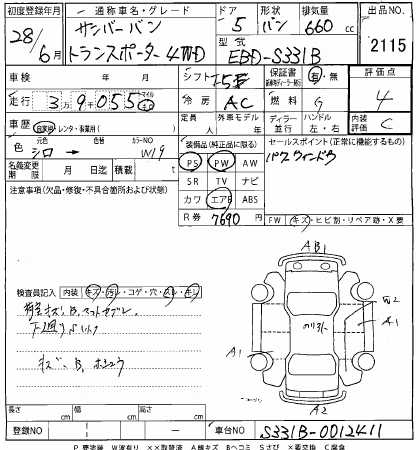 初度登録年月 通称車名・グレード ドア 形状 排気量 出品NO
28/6月 サンバーバン 5 バン 660cc 2115
トランスポーター 4WD 型式 EBD-S331B
車検 年 月 シフト 保証書 有・無 評価点
走行 3万9055 マイル km 冷房 AC 燃料 G 4
車歴 自家用・レンタ・事業用( ) 定員 人 外車モデル 年 ディーラー・並行 ハンドル 左・右 内装評価 C
色 元色 シロ → 色替 カラーNO W19
装備品(純正品に限る) セールスポイント(正常に機能するもの)
PS PW AW パワーウィンドウ
名義変更期限 月 日迄 積載 t SR TV ナビ
注意事項(欠品・修復・不具合箇所および状態) カワ エアB ABS
R券 7690円 FW キズ・ヒビ割・リペア跡・X要
検査員記入 内装 キズ・汚レ・コゲ・穴・スレ・キレ
下廻り
キズ、B、
AB1
W2
A1
A1
A2
長さ cm 幅 cm 高さ cm
登録NO 車台NO S331B-0012411
P 要塗装 W波有り ××取替済 A線キズ Bヘコミ Sさび ×要交換 C腐食